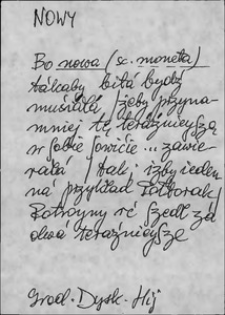 NOWY
Bo nowa (sc. moneta)
takaby bitá bydź
musiała, żeby przyna-
mniey tę teraźnieyszą
w sobie sowicie... zawie-
rała / tak, iżby ieden
ná przykład Połtorak /
Potroyny rć szedł zá
dwá teraźnieysze
Grod. Dysk. Hij